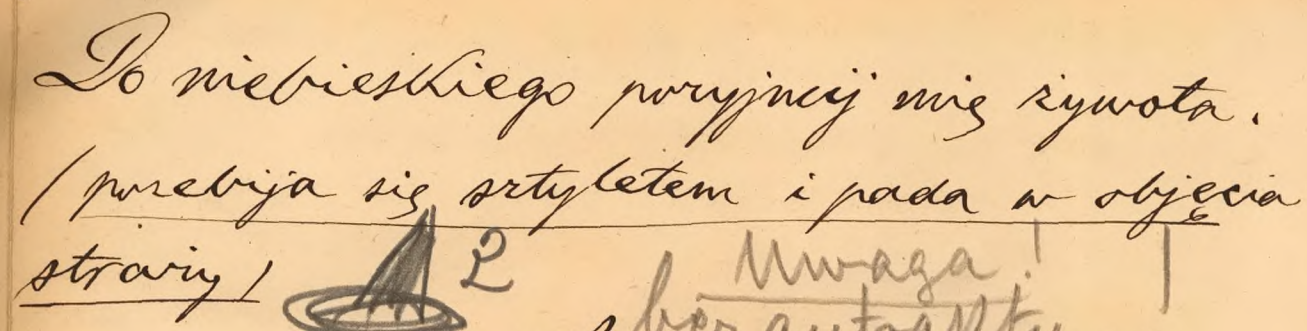 Do niebieskiego przyjmij mię żywota.
(przebija się sztyletem i pada w objęcia
straży)
2 Uwaga!
bez antraktu